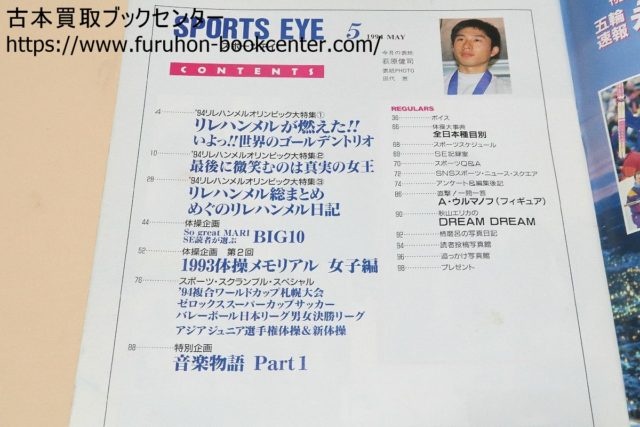 古本買取ブックセンター
https://www.furuhon-bookcenter.com/
SPORTS EYE
5
1994 MAY
今月の表紙
荻原健司
表紙PHOTO
CONTENTS
五輪
速報
4
'94リレハンメルオリンピック大特集①
リレハンメルが燃えた!!
いよっ!!世界のゴールデントリオ
10
'94リレハンメルオリンピック大特集②
最後に微笑むのは真実の女王
29
'94リレハンメルオリンピック大特集③
リレハンメル総まとめ
めぐのリレハンメル日記
44
体操企画
So great MARI
SE読者が選ぶ BIG10
52
体操企画 第2回
1993体操メモリアル 女子編
76
スポーツ・スクランブル・スペシャル
'94複合ワールドカップ札幌大会
ゼロックススーパーカップサッカー
バレーボール日本リーグ男女決勝リーグ
アジアジュニア選手権体操&新体操
88
特別企画
音楽物語 Part 1
REGULARS
36 ボイス
66 体操大事典
全日本種目別
68 スポーツスケジュール
69 SE記録室
70 スポーツQ&A
72 SNSスポーツ・ニュース・スクエア
74 アンケート&編集後記
86 直撃!一問一答
A・ウルマノフ(フィギュア)
90 秋山エリカの
DREAM DREAM
92 柄磨呂の写真日記
94 読者投稿写真館
96 追っかけ写真館
98 プレゼント